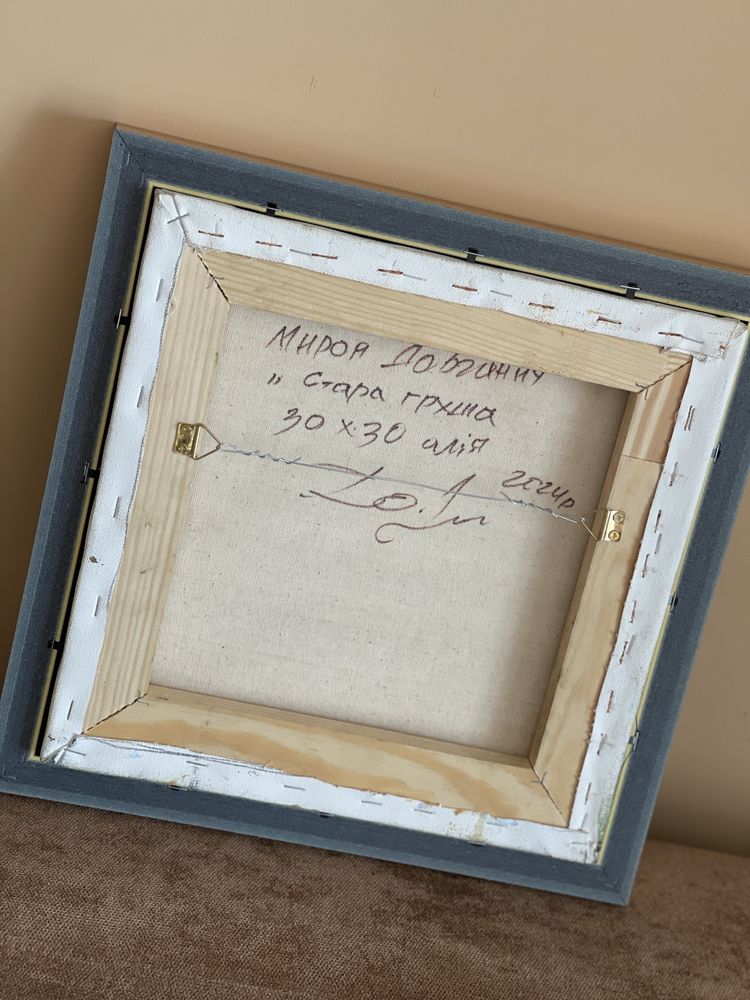 Мирон Довганич
„ Стара груша
30 х 30 олія
2024р